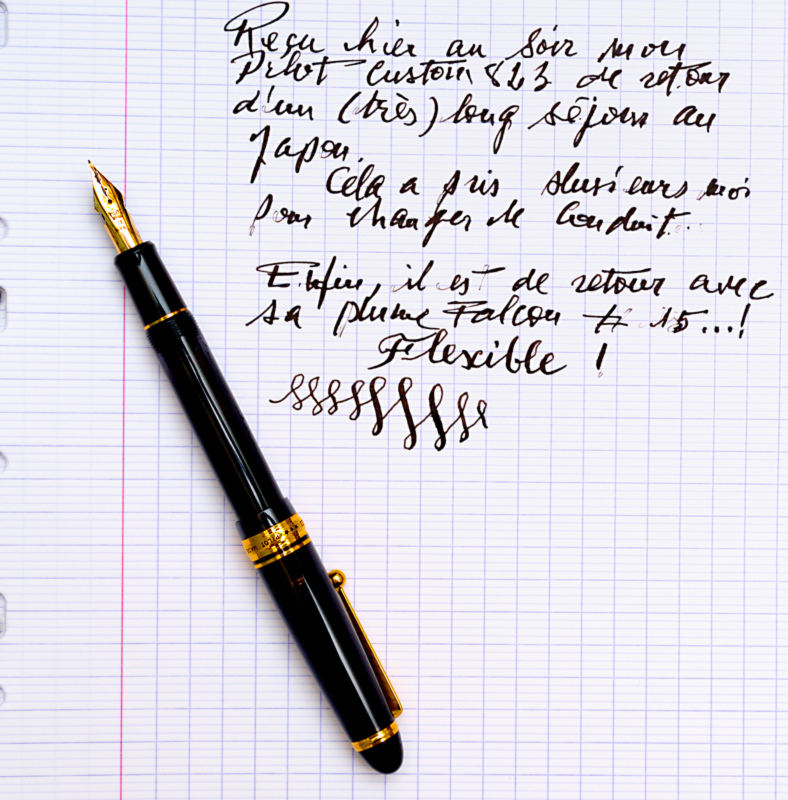 Reçu hier au soir mon
Pilot Custom 823 de retour
d'un (très) long séjour au
Japon.
Cela a pris plusieurs mois
pour changer le conduit...
Enfin, il est de retour avec
sa plume Falcon # 15...!
Flexible !